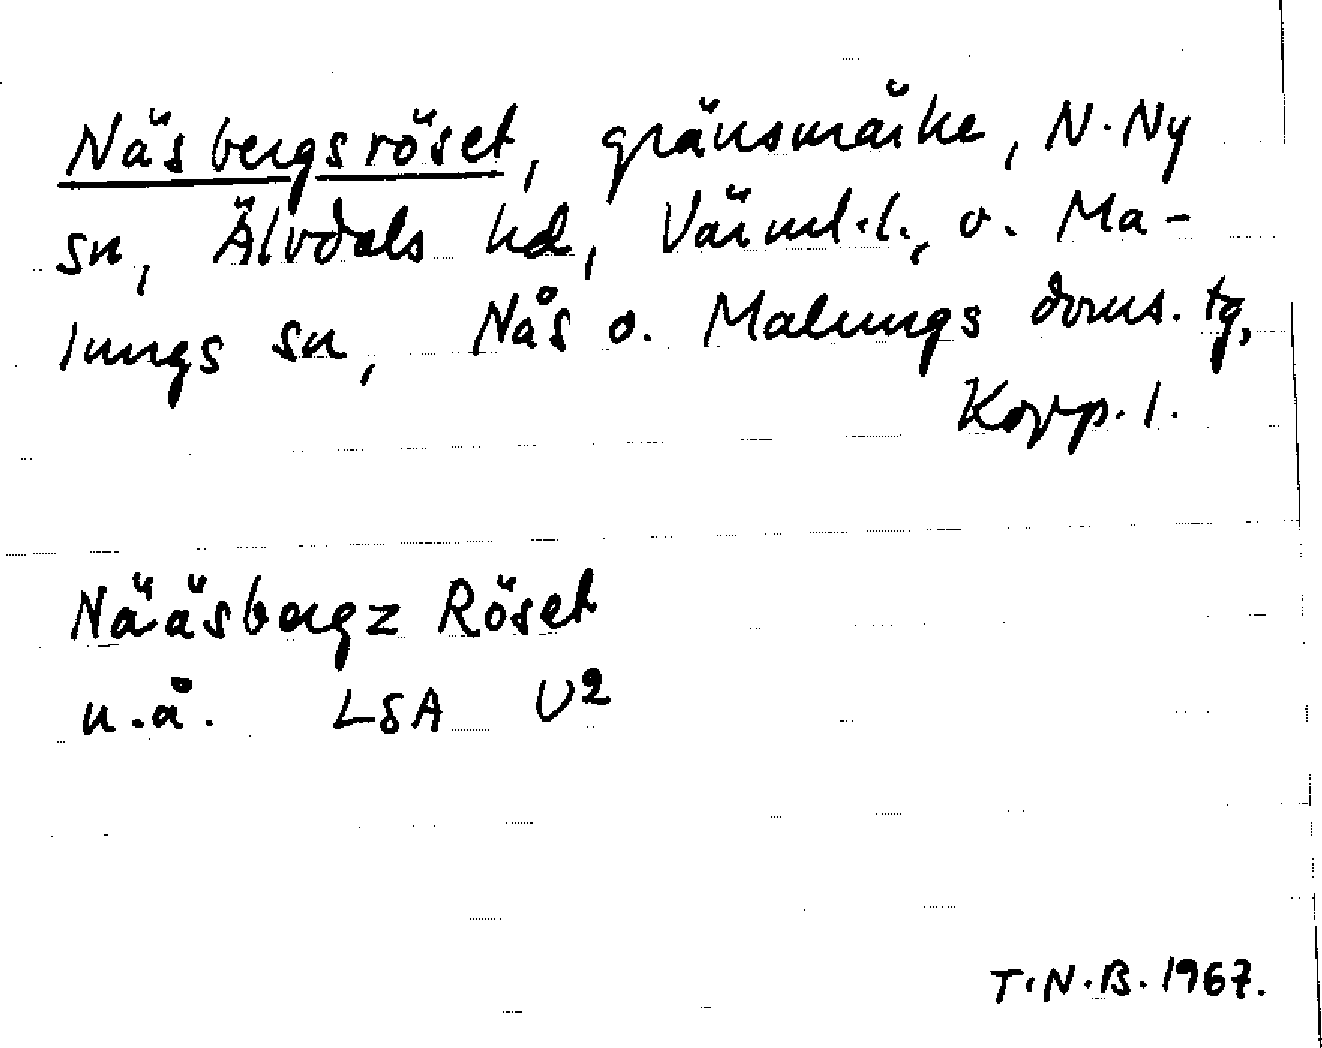 Näsbergsröset, gränsmärke, N. Ny
sn, Älvdals hd, Värml. l., o. Ma-
lungs sn, Nås o. Malungs doms. tg,
Kopp. l.
Nääsbergz Röset
u.å. LSA U2
T.N.B. 1967.